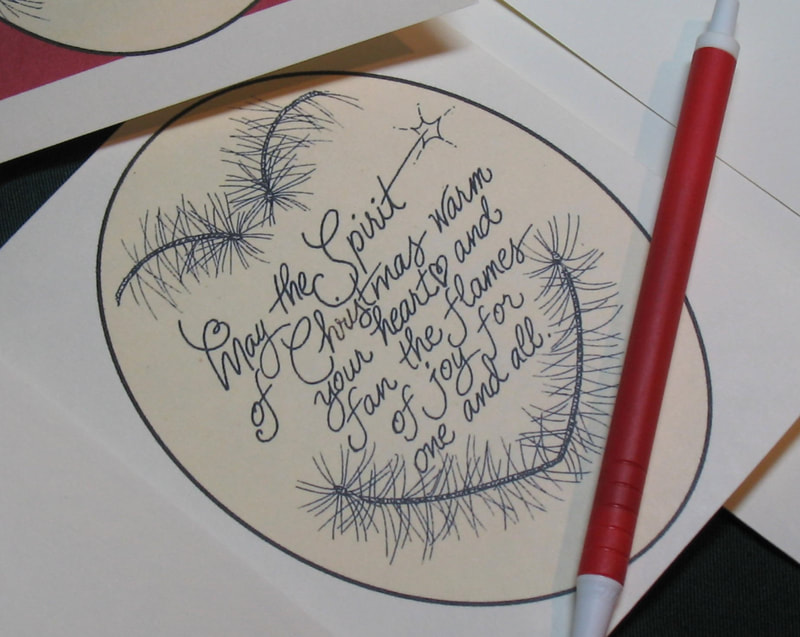 May the Spirit
of Christmas warm
your heart and
fan the flames
of joy for
one and all.